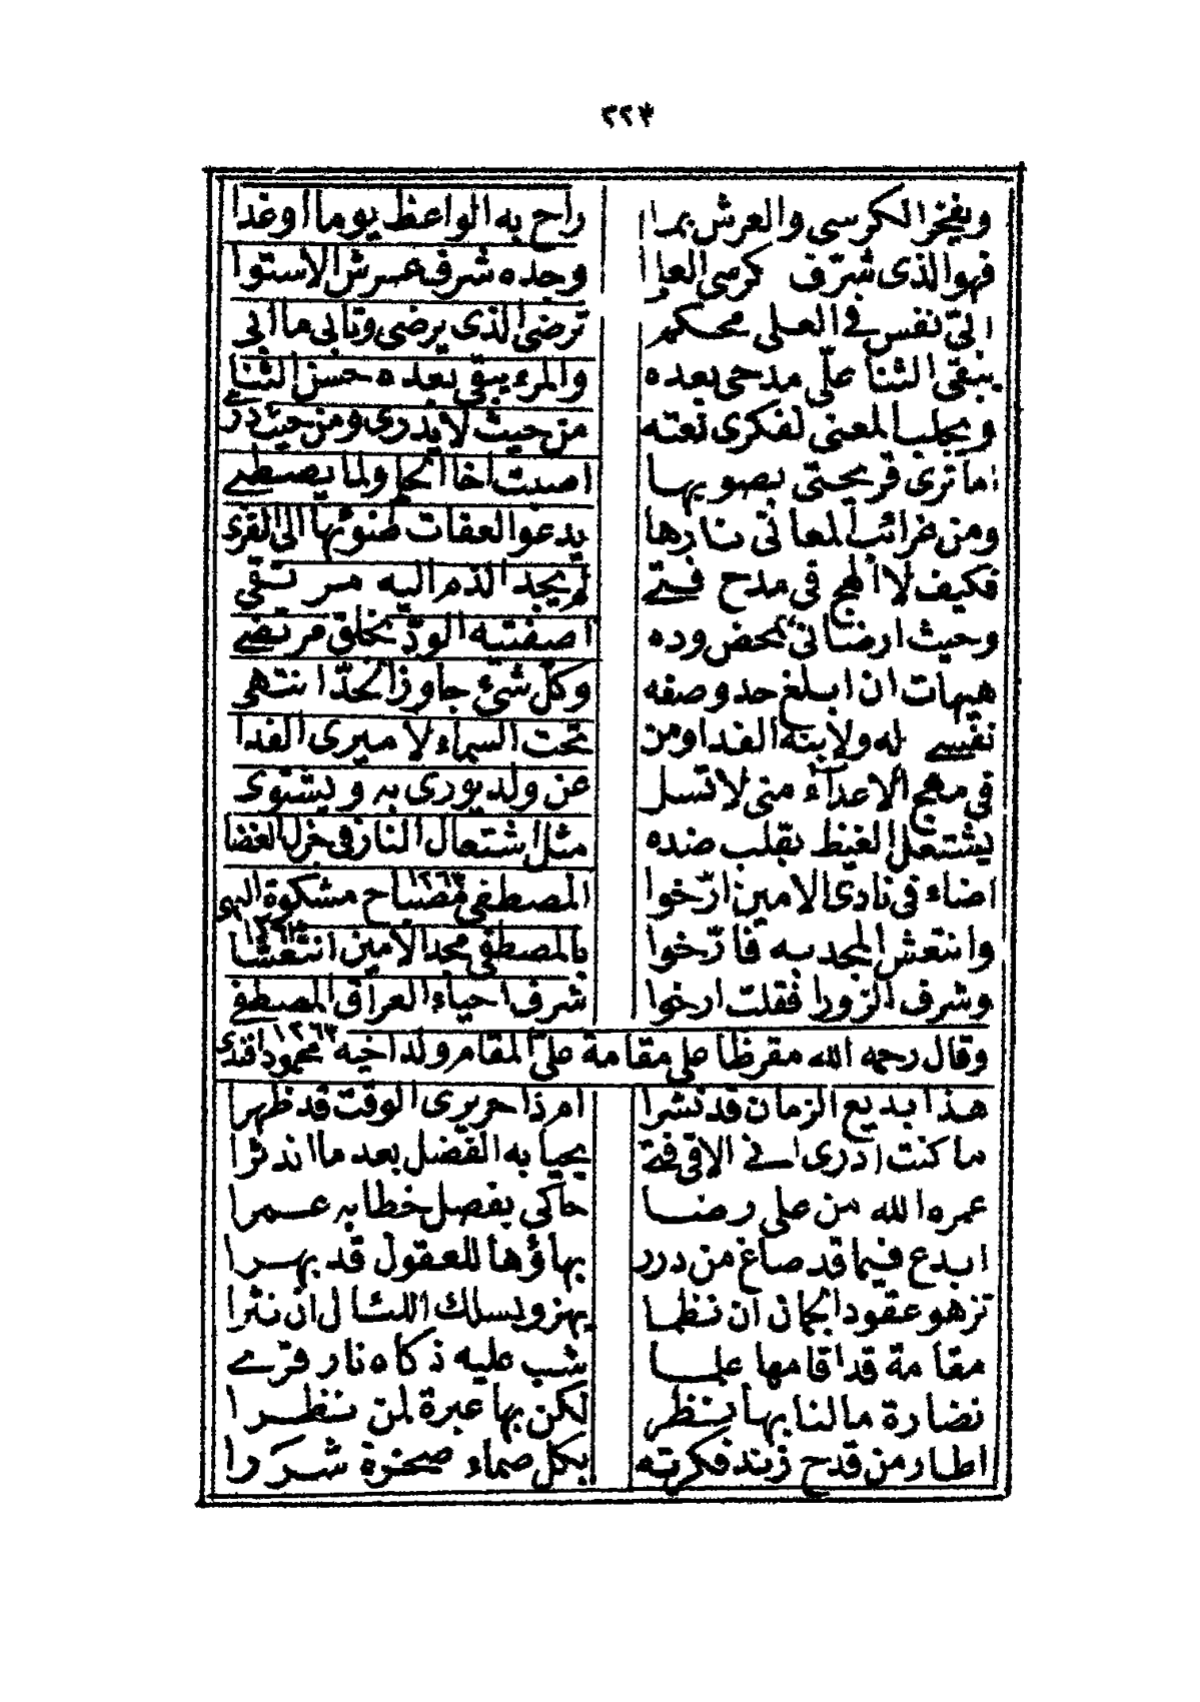 ٣٢٤
ويفخر الكرسى والعرش بما راح به الواعظ يوما او غدا
فهو الذى شرّف كرسى العلا وجده شرف عرش الاستوا
الىّ نفس فى العلى محكم ترضى الذى يرضى وتابى ما ابى
يبقى الثنا علّى مدحى بعده والمرء يبقى بعده حسن الثنا
ويجلب المعنى لفكرى نعته من حيث لا يدرى ومن حيث درى
اما ترى قريحتى بصوبها اصبت اخا الحيا ولما يصطلى
ومن غرائب المعانى نارها يدعو العفات ضوئها الى القرى
فكيف لا الهج فى مدح فتى لم يجد الذم اليه مرتقى
وحيث ارضانى بمحض وده اصفته الودّ بخلق مرتضى
هيهات ان ابلغ حد وصفه وكل شىء جاوز الحدّ انتهى
نفسى له ولابنه الفدا ومن تحت السماء لا ميرى الفدا
فى مهج الاعداء منى لا تسل عن ولد يورى به ويشتوى
يشتعل الغيظ بقلب ضده مثل اشتعال النار فى جزل الغضا
اضاء فى نادى الامين ارّخوا المصطفى مصباح مشكوة البهى ١٢٦٣
وانتعش المجد به فارّخوا بالمصطفى مجد الامين انتعشا ١٢٦٣
وشرف الزورا فقلت ارخوا شرف احياء العراق المصطفى ١٢٦٣
وقال رحمه الله مقرظا على مقامة علىّ المقام ولد اخيه محمود افندى
هذا بديع الزمان قد نشرا ام ذا حريرى الوقت قد ظهرا
ما كنت ادرى اسنى الاقى فتى يحيا به الفضل بعد ما اندثرا
عمره الله من على رضا حاكى بفصل خطابه عمرا
ابدع فيما قد صاغ من درر بهاؤها للعقول قد بهرا
تزهو عقود الجمان ان نظما يهزو بسلك اللئالى ان نثرا
مقامة قد اقامها علما شب عليه ذكاه نار قرى
نضارة ما لنا بها نظر لكن بها عبرة لمن نظرا
اطار من قدح زند فكرته بكل صماء صخرة شررا